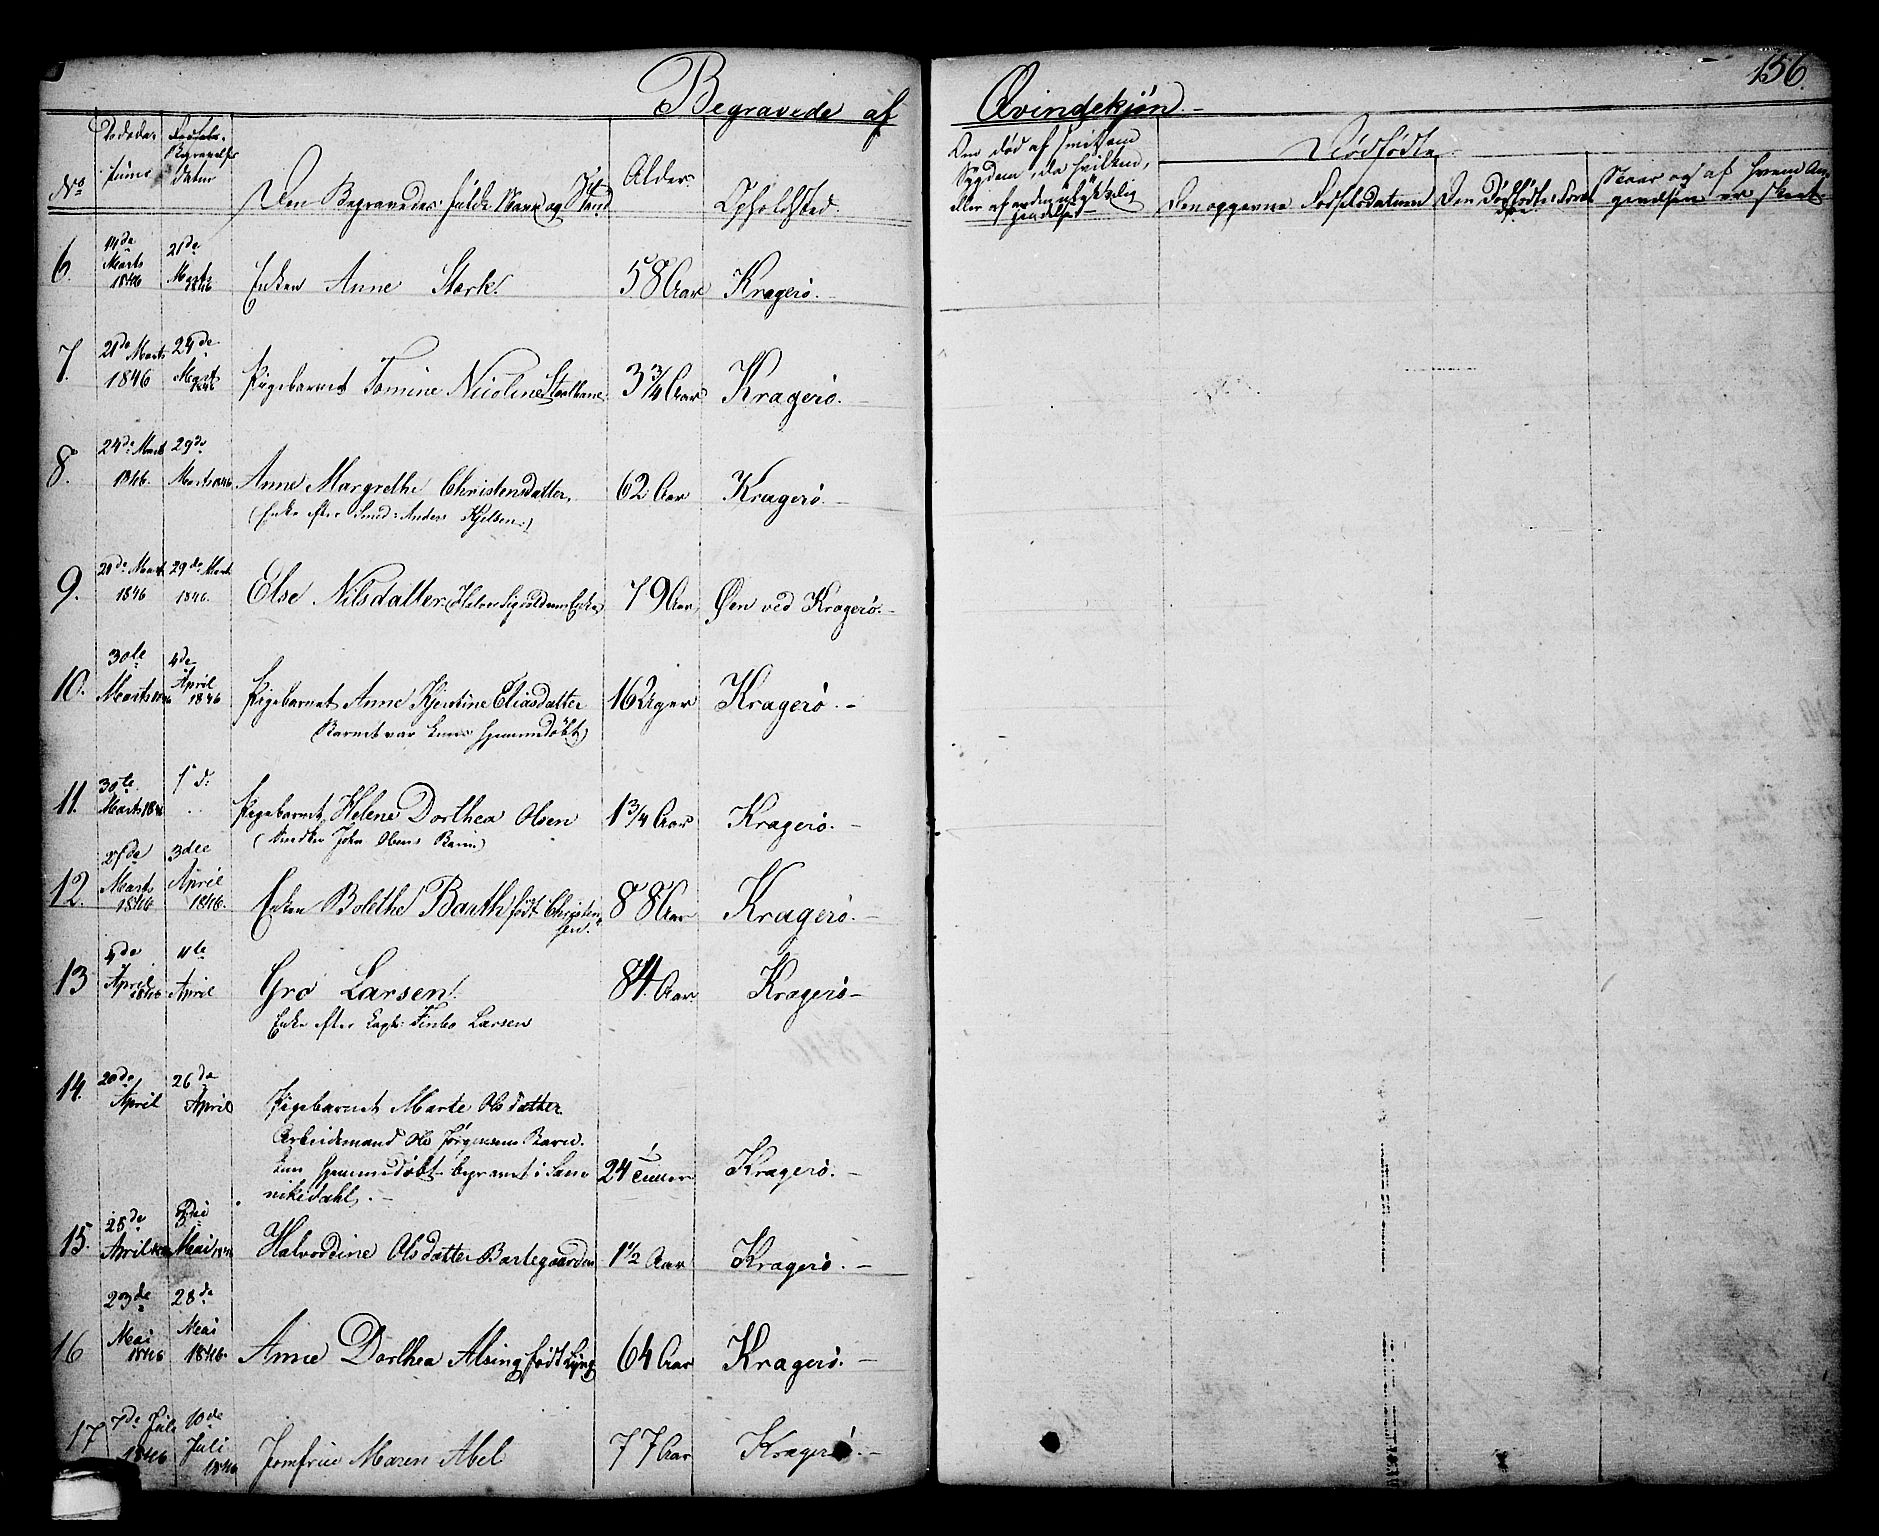 156.
Begravede af Qvindekjøn.
No
Dødsdag
Den Begravedes fulde Navn og Stand
Alder.
Opholdsted.
Den død af smitsom
Sygdom, da hvilken,
eller af anden ulykkelig
Hendelse
Dødfødte
Den opgivne Fødselsdatum
Naar og af hvem An-
givelsen er skeet.
6. 14de Marts 1846 21de Marts 1846 Enken Anne Stork. 58 Aar Kragerö.
7. 21de Marts 1846 29de Marts 1846 Pigebarnet Tomine Nicoline Staalhane 3 3/4 Aar Kragerö.
8. 24de Marts 1846. 29de Marts 1846 Anne Margrethe Christensdatter, 62 Aar Kragerö.
(Enke efter Smed Anders Kjelsen)
9. 20de Marts 1846 29de Marts 1846. Else Nilsdatter 79 Aar Øen ved Kragerö.
10. 30te Marts 1846 4de April 1846 Pigebarnet Anne Kjerstine Eliasdatter 16 Uger Kragerö.
(Barnet var kuns hjemmedøbt)
11. 30te Marts 1846 Pigebarnet Helene Dorthea Olsen 1 3/4 Aar Kragerö.
(Snedker John Olsens Barn)
12. Marts 1846 3die April 1846. Enken Bolethe Barth født Christen- 88 Aar Kragerö.
sen.
13 April 1846 11te April Gro Larsen. 84. Aar. Kragerö
Enke efter Finbo Larsen
14. 20de April 26de April Pigebarnet Marte Olsdatter
Arbeidsmand Ole Jørgensens Barn.
kun hjemmedøbt begravet i San- 24 Timer Kragerö.
nikedahl.
15. 25de April 1846 3die Mai 1846 Halvordine Olsdatter Bartegaarden 1 1/2 Aar Kragerö.
16 23de Mai 1846 28de Mai 1846. Anne Dorthea Alsing født Lyng 64 Aar Kragerö.
17 7de Juli 1846 10de Juli 1846 Jomfrue Maren Abel 77 Aar Kragerö.